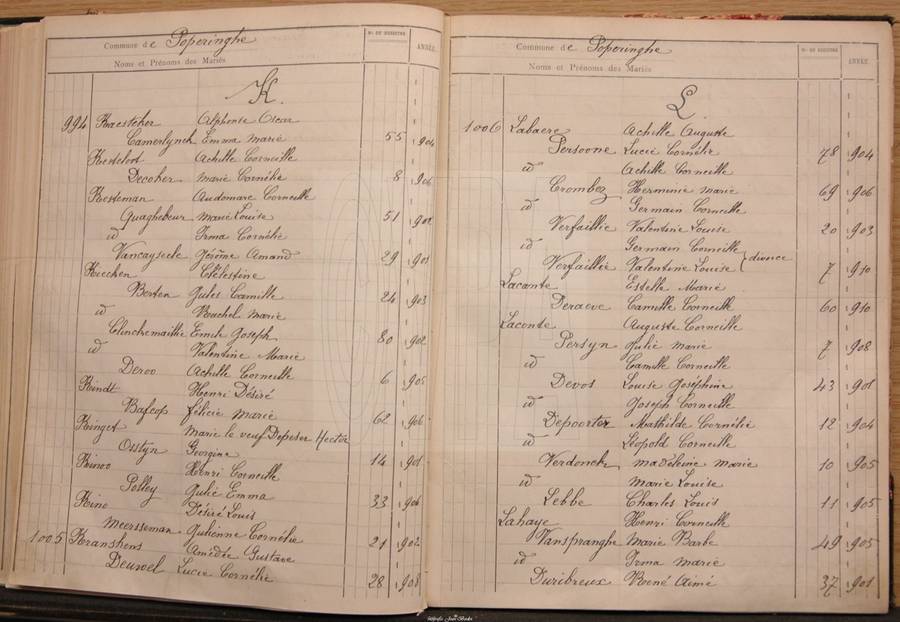 Commune de Poperinghe
Noms et Prénoms des Mariés
N° DU REGISTRE
ANNÉE
K.
994 Kaestcher Alphonse Oscar
Camerlynck Emma Marie 55 1904
Kestelort Achille Corneille
Decoker Marie Cornélie 8 1906
Kesteman Audomare Corneille
Quaghebeur Marie Louise 51 1902
id Irma Cornélie
Vancayseele Jérôme Amand 29 1901
Kiecken Célestine
Berten Jules Camille 24 1903
id Rachel Marie
Clinckemaillie Emile Joseph 80 1902
id Valentine Marie
Deroo Achille Corneille 6 1905
Kindt Henri Désiré
Bafcop Félicie Marie 62 1906
Kinget Marie le veuf Deposer Hector
Osstyn Georgine 14 1901
Kinoo Henri Corneille
Polley Julie Emma 33 1906
Kino Désiré Louis
Meersseman Julienne Cornélie 21 1902
1005 Kranskens Amédée Gustave
Deuwel Lucie Cornélie 28 1908
Commune de Poperinghe
Noms et Prénoms des Mariés
N° DU REGISTRE
ANNÉE
L.
1006 Labaere Achille Auguste
Persoone Lucie Cornélie 78 1904
id Achille Corneille
Crombez Herminie Marie 69 1906
id Germain Corneille
Verfaillie Valentine Louise 20 1903
id Germain Corneille
Verfaillie Valentine Louise } divorce 7 1910
Lacante Estelle Marie
Deraeve Camille Corneille 60 1910
Laconte Auguste Corneille
Persyn Julie Marie 7 1908
id Camille Corneille
Devos Louise Joséphine 43 1901
id Joseph Corneille
Depoorter Mathilde Cornélie 12 1904
id Léopold Corneille
Verdonck Madeleine Marie 10 1905
id Marie Louise
Lebbe Charles Louis 11 1905
Lahaye Henri Corneille
Vanspranghe Marie Barbe 49 1905
id Irma Marie
Duribreux René Aimé 37 1901